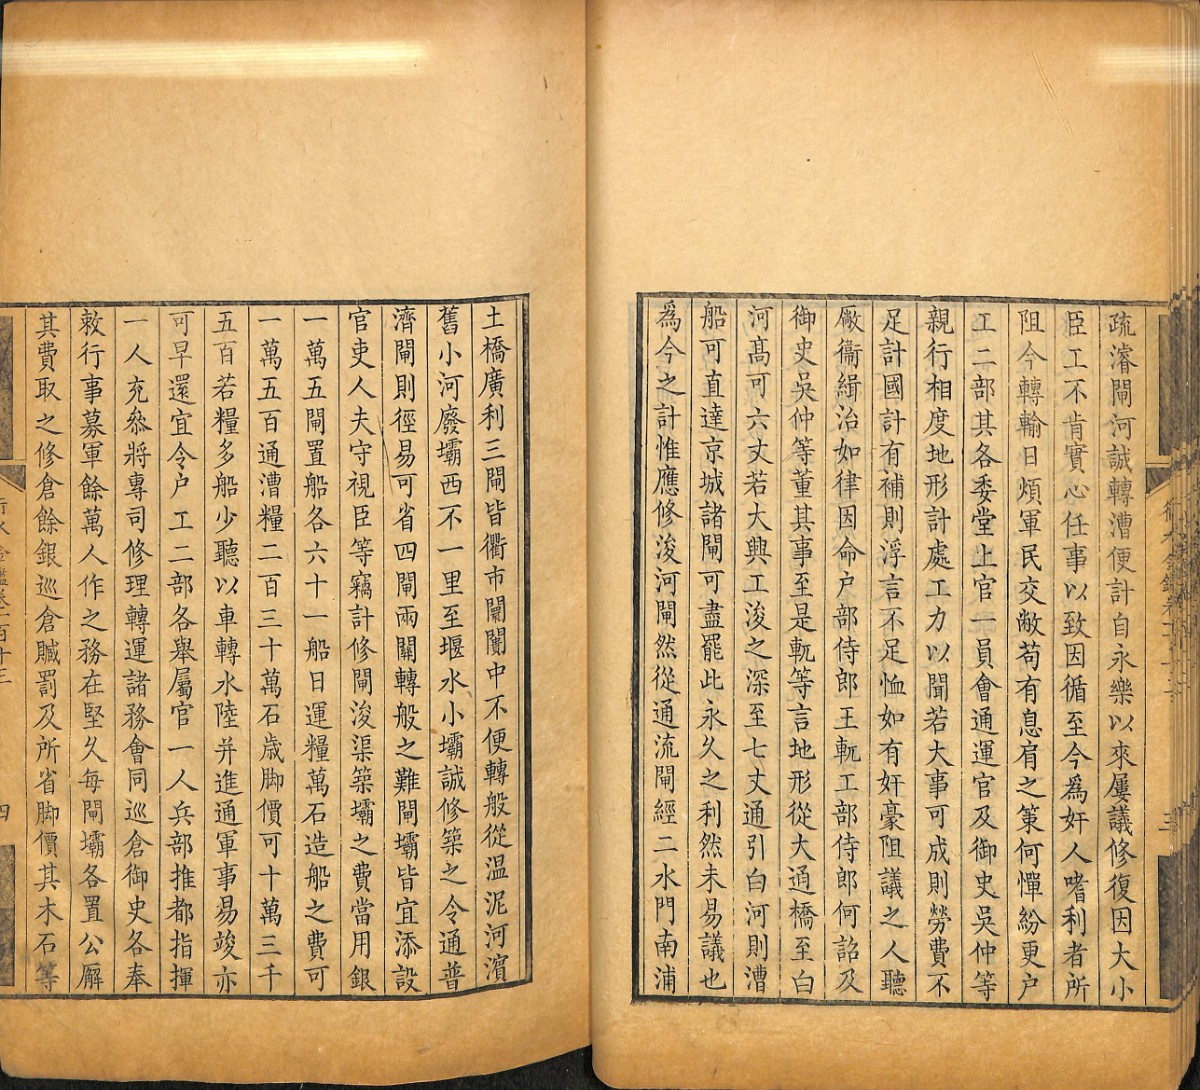 疏濬閘河誠轉漕便計自永樂以來屢議修復因大小
臣工不肯實心任事以致因循至今爲奸人嗜利者所
阻今轉輸日煩軍民交敝苟有息肩之策何憚紛更户
工二部其各委堂上官一員會通運官及御史吳仲等
親行相度地形計處工力以聞若大事可成則勞費不
足計國計有補則浮言不足恤如有奸豪阻議之人聽
厰衞緝治如律因命户部侍郎王軏工部侍郎何詔及
御史吳仲等董其事至是軏等言地形從大通橋至白
河髙可六丈若大興工浚之深至七丈通引白河則漕
船可直達京城諸閘可盡罷此永久之利然未易議也
爲今之計惟應修浚河閘然從通流閘經二水門南浦
土橋廣利三閘皆衢市闤闠中不便轉般從温泥河濱
舊小河廢壩西不一里至堰水小壩誠修築之令通普
濟閘則徑易可省四閘兩關轉般之難閘壩皆宜添設
官吏人夫守視臣等竊計修閘浚渠築壩之費當用銀
一萬五閘置船各六十一船日運糧萬石造船之費可
一萬五百通漕糧二百三十萬石歳脚價可十萬三千
五百若糧多船少聽以車轉水陸并進通軍事易竣亦
可早還宜令户工二部各舉屬官一人兵部推都指揮
一人充叅將專司修理轉運諸務會同巡倉御史各奉
敕行事募軍餘萬人作之務在堅久每閘壩各置公廨
其費取之修倉餘銀巡倉贓罰及所省脚價其木石等
行水金鑑卷一百十三
四